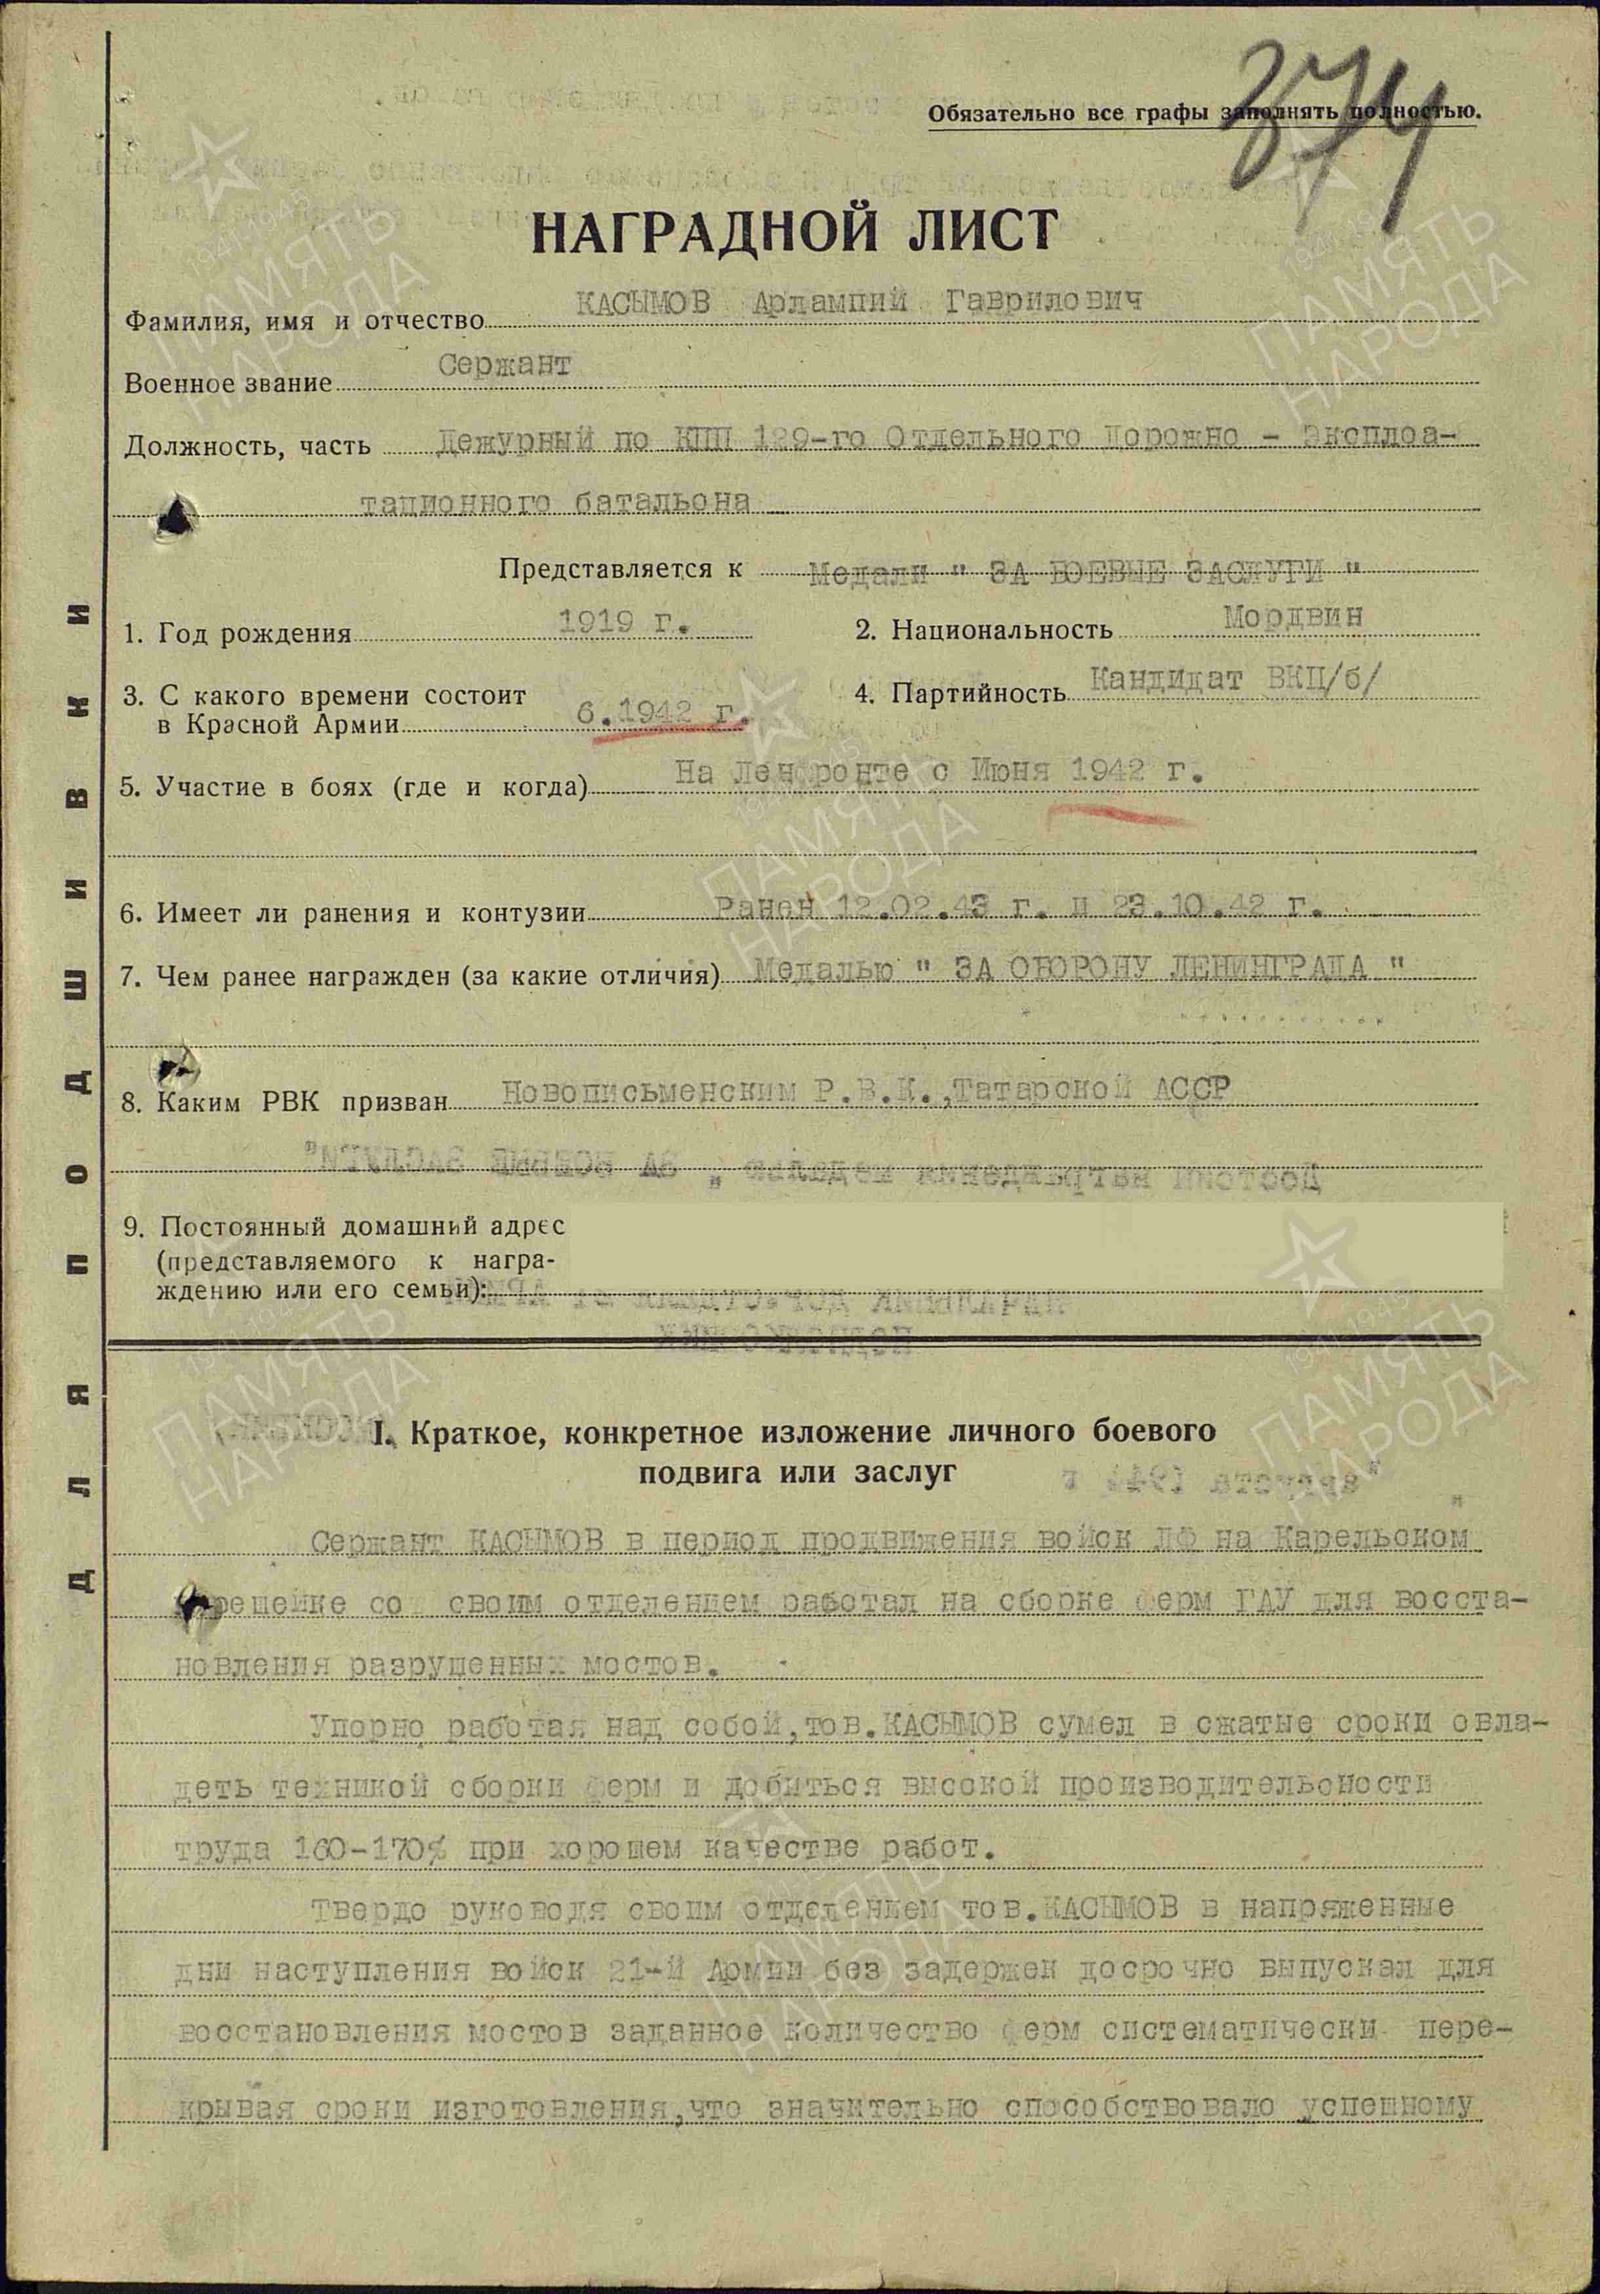 374
Обязательно все графы заполнять полностью.
НАГРАДНОЙ ЛИСТ
Фамилия, имя и отчество КАСЫМОВ Арлампий Гаврилович
Военное звание Сержант
Должность, часть Дежурный по КПП 129-го Отдельного Дорожно - Эксплоа-
тационного батальона
Представляется к Медали " ЗА БОЕВЫЕ ЗАСЛУГИ "
1. Год рождения 1919 г. 2. Национальность Мордвин
3. С какого времени состоит
в Красной Армии 6.1942 г. 4. Партийность Кандидат ВКП/б/
5. Участие в боях (где и когда) На Ленфронте с Июня 1942 г.
6. Имеет ли ранения и контузии Ранен 12.02.43 г. и 23.10.42 г.
7. Чем ранее награжден (за какие отличия) Медалью " ЗА ОБОРОНУ ЛЕНИНГРАДА "
8. Каким РВК призван Новописьменским Р.В.К.,Татарской АССР
9. Постоянный домашний адрес
(представляемого к награ-
ждению или его семьи):
I. Краткое, конкретное изложение личного боевого
подвига или заслуг
Сержант КАСЫМОВ в период продвижения войск ЛФ на Карельском
перешейке со своим отделением работал на сборке ферм ГАУ для восста-
новления разрушенных мостов.
Упорно работая над собой,тов.КАСЫМОВ сумел в сжатые сроки овла-
деть техникой сборки ферм и добиться высокой производительсности
труда 160-170% при хорошем качестве работ.
Твердо руководя своим отделением тов.КАСЫМОВ в напряженные
дни наступления войск 21-й Армии без задержек досрочно выпускал для
восстановления мостов заданное количество ферм систематически пере-
крывая сроки изготовления,что значительно способствовало успешному
ДЛЯ ПОДШИВКИ
1941-1945
ПАМЯТЬ
НАРОДА